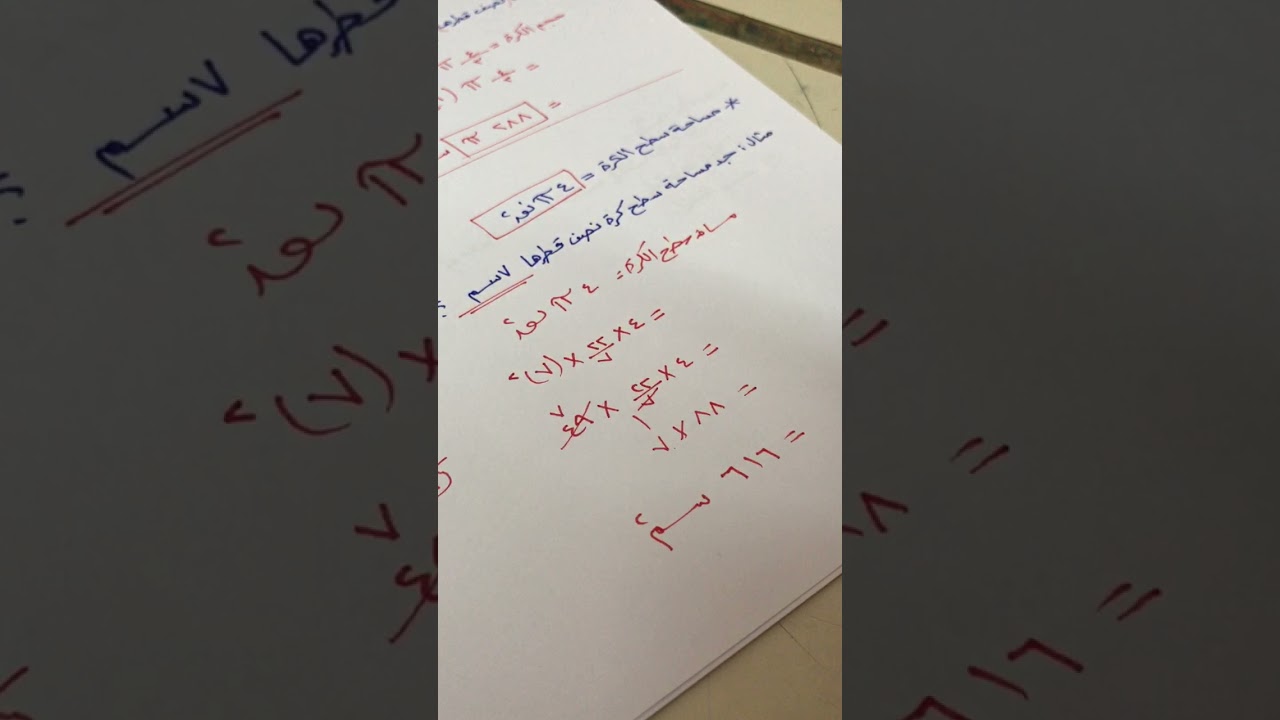 نصف قطرها
حجم الكرة = ٤/٣ π
= ٤/٣ π (
= ٢٨٨ π
* مساحة سطح الكرة = ٤ π نق٢
مثال : جد مساحة سطح كرة نصف قطرها ٧ سم ؟
مساحة سطح الكرة = ٤ π نق٢
= ٤ × ٢٢/٧ × (٧)٢
= ٤ × ٢٢/٧ × ٤٩
= ٨٨ × ٧
= ٦١٦ سم٢